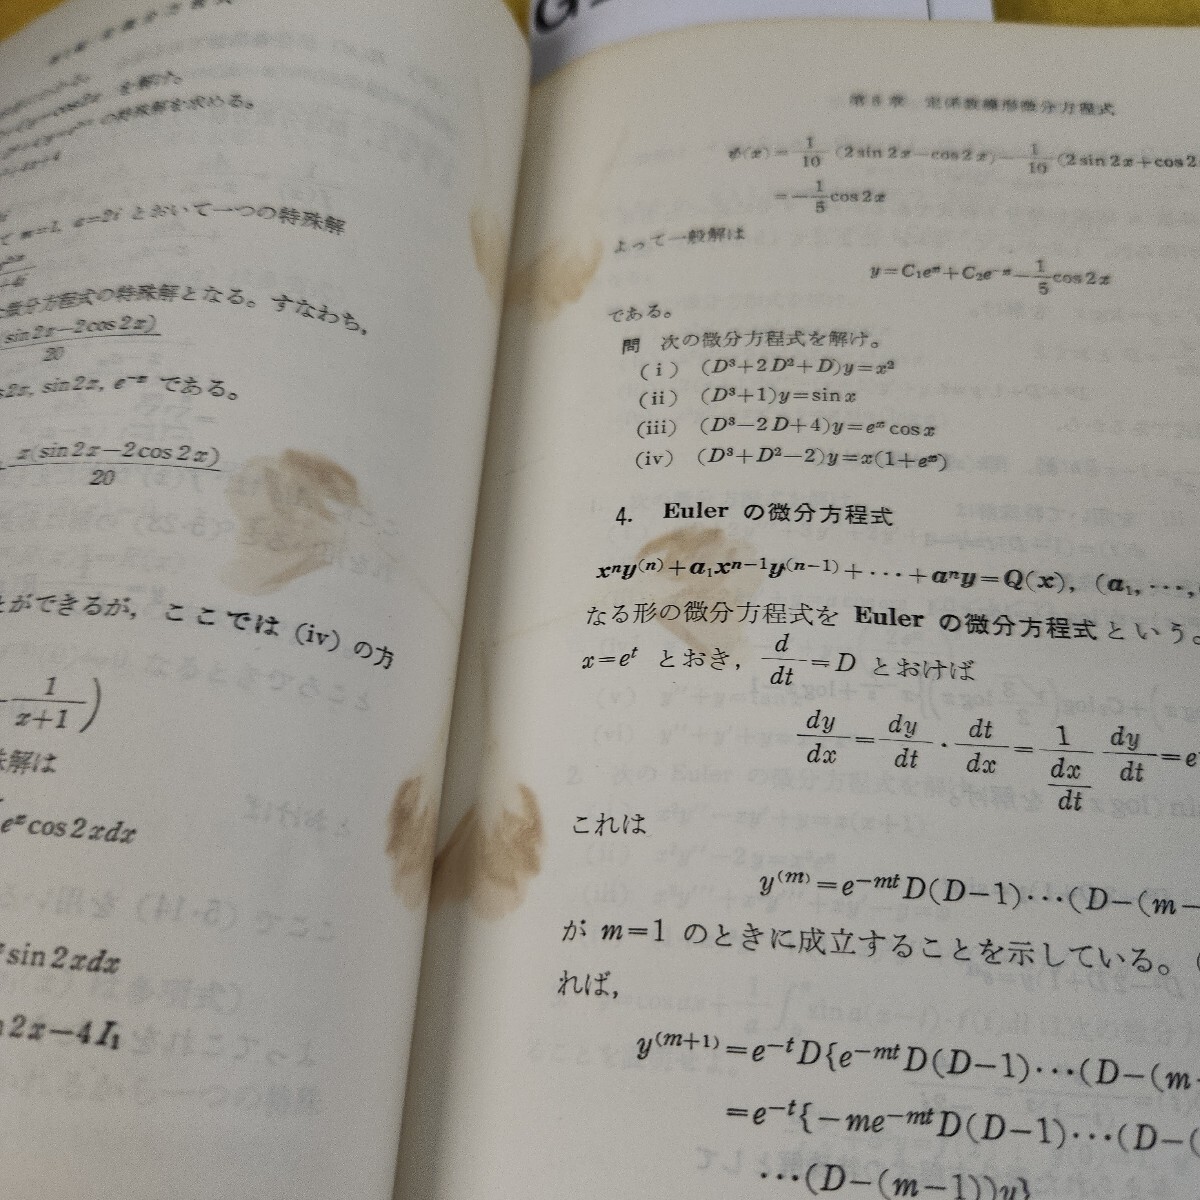 を解け。
の特殊解を求める。
て m=1, a=2i とおいて一つの特殊解
微分方程式の特殊解となる。すなわち,
sin2x−2cos2x)
20
s2x, sin2x, e^{-x} である。
x(sin2x−2cos2x)
20
とができるが, ここでは (iv) の方
1
x+1 )
殊解は
e^x cos2xdx
sin2xdx
2x−4I₁
第5章 定係数線形微分方程式
φ(x)=1/10 (2sin2x−cos2x)−1/10 (2sin2x+cos2
=−1/5 cos2x
よって一般解は
y=C₁e^x+C₂e^{-x}−1/5 cos2x
である。
問 次の微分方程式を解け。
(i) (D³+2D²+D)y=x²
(ii) (D³+1)y=sin x
(iii) (D³−2D+4)y=e^x cos x
(iv) (D³+D²−2)y=x(1+e^x)
4. Euler の微分方程式
x^n y^{(n)}+a₁x^{n−1}y^{(n−1)}+⋯+a^n y=Q(x), (a₁, ⋯,
なる形の微分方程式を Euler の微分方程式という。
x=e^t とおき, d/dt=D とおけば
dy/dx=dy/dt・dt/dx=1/(dx/dt) dy/dt=e
これは
y^{(m)}=e^{−mt}D(D−1)⋯(D−(m−
が m=1 のときに成立することを示している。(
れば,
y^{(m+1)}=e^{−t}D{e^{−mt}D(D−1)⋯(D−(m−
=e^{−t}{−me^{−mt}D(D−1)⋯(D−(
⋯(D−(m−1))y}